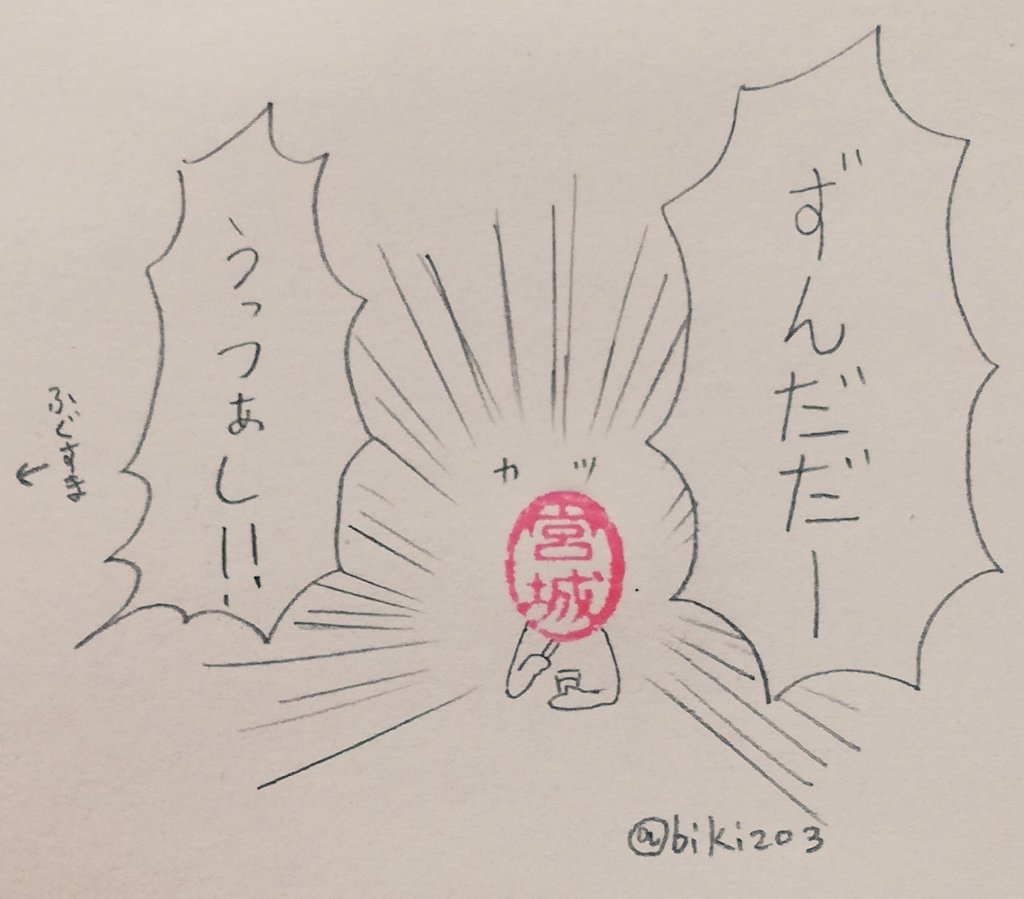 ずんだだー
カッ
宮城
うっつぁし!!
ふぐすま
←
@biki203